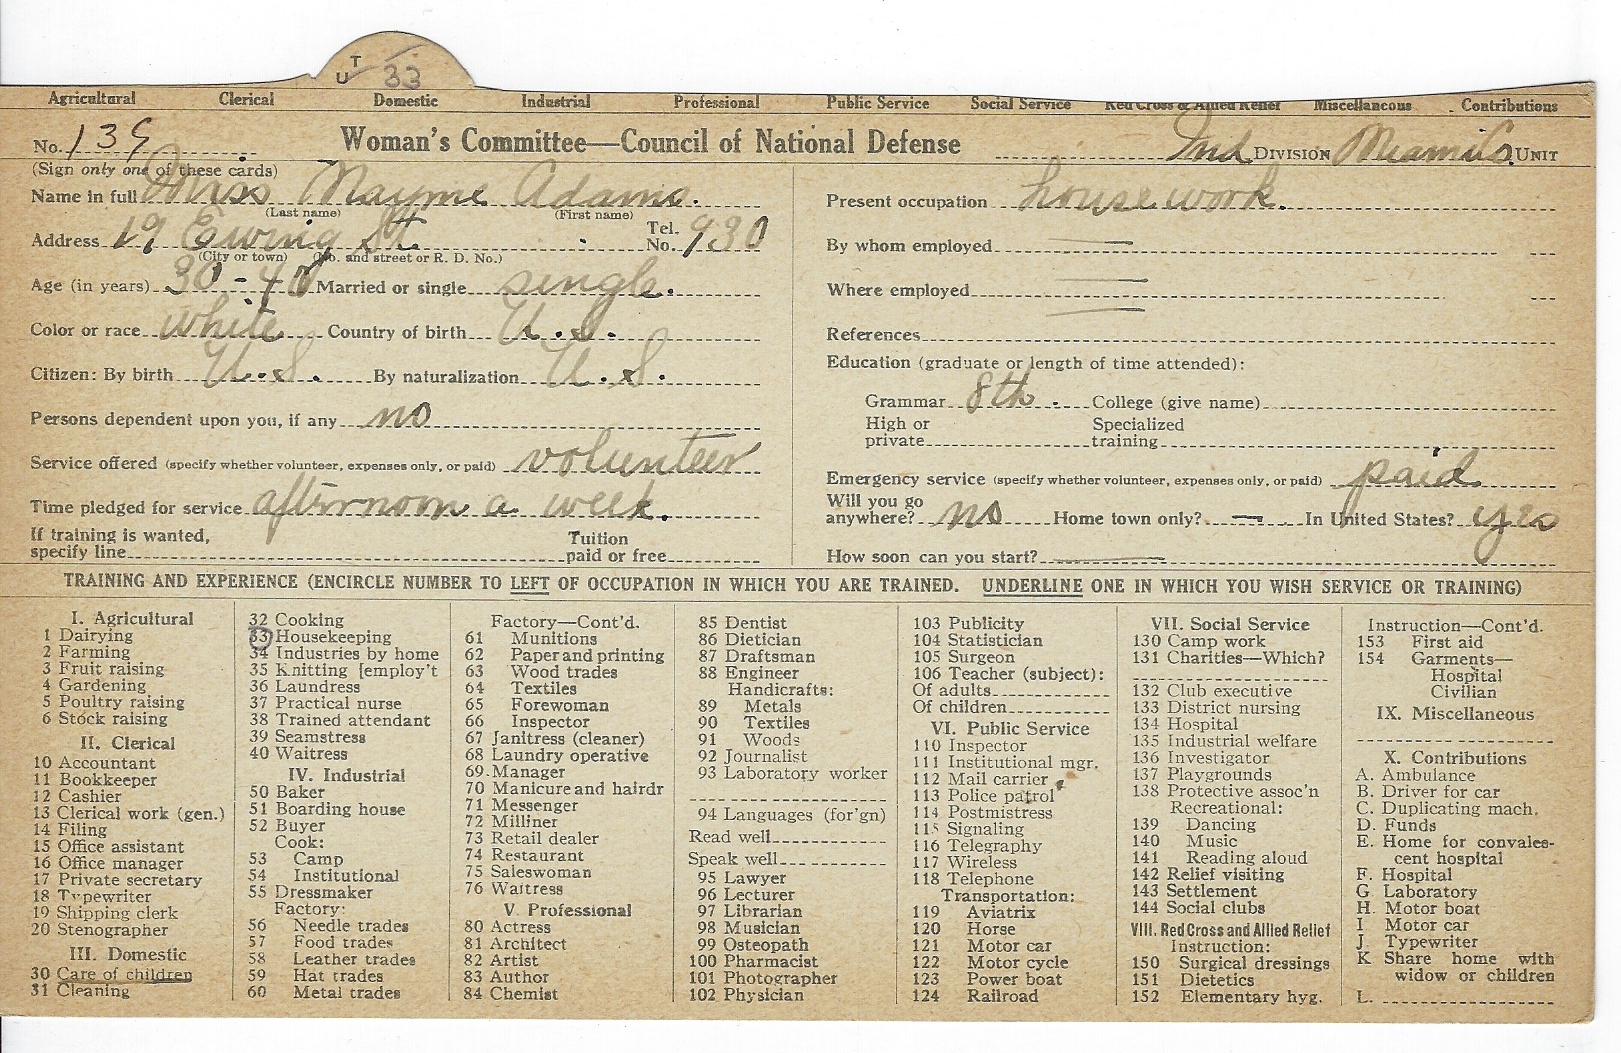 T
U 33
Agricultural Clerical Domestic Industrial Professional Public Service Social Service Red Cross & Allied Relief Miscellaneous Contributions
No. 139 Woman's Committee—Council of National Defense Ind DIVISION Miami Co. UNIT
(Sign only one of these cards)
Name in full Miss Mayme Adams.
(Last name) (First name)
Address 19 Ewing St. Tel. No. 930
(City or town) (No. and street or R. D. No.)
Age (in years) 30-40 Married or single single.
Color or race white Country of birth U.S.
Citizen: By birth U.S. By naturalization U.S.
Persons dependent upon you, if any no
Service offered (specify whether volunteer, expenses only, or paid) volunteer
Time pledged for service afternoon a week.
If training is wanted, specify line Tuition paid or free
Present occupation house work.
By whom employed
Where employed
References
Education (graduate or length of time attended):
Grammar 8th. College (give name)
High or private Specialized training
Emergency service (specify whether volunteer, expenses only, or paid) paid
Will you go anywhere? no Home town only? — In United States? yes
How soon can you start?
TRAINING AND EXPERIENCE (ENCIRCLE NUMBER TO LEFT OF OCCUPATION IN WHICH YOU ARE TRAINED. UNDERLINE ONE IN WHICH YOU WISH SERVICE OR TRAINING)
I. Agricultural
1 Dairying
2 Farming
3 Fruit raising
4 Gardening
5 Poultry raising
6 Stock raising
II. Clerical
10 Accountant
11 Bookkeeper
12 Cashier
13 Clerical work (gen.)
14 Filing
15 Office assistant
16 Office manager
17 Private secretary
18 Typewriter
19 Shipping clerk
20 Stenographer
III. Domestic
30 Care of children
31 Cleaning
32 Cooking
33 Housekeeping
34 Industries by home
35 Knitting [employ't
36 Laundress
37 Practical nurse
38 Trained attendant
39 Seamstress
40 Waitress
IV. Industrial
50 Baker
51 Boarding house
52 Buyer
Cook:
53 Camp
54 Institutional
55 Dressmaker
Factory:
56 Needle trades
57 Food trades
58 Leather trades
59 Hat trades
60 Metal trades
Factory—Cont'd.
61 Munitions
62 Paper and printing
63 Wood trades
64 Textiles
65 Forewoman
66 Inspector
67 Janitress (cleaner)
68 Laundry operative
69 Manager
70 Manicure and hairdr
71 Messenger
72 Milliner
73 Retail dealer
74 Restaurant
75 Saleswoman
76 Waitress
V. Professional
80 Actress
81 Architect
82 Artist
83 Author
84 Chemist
85 Dentist
86 Dietician
87 Draftsman
88 Engineer
Handicrafts:
89 Metals
90 Textiles
91 Woods
92 Journalist
93 Laboratory worker
94 Languages (for'gn)
Read well
Speak well
95 Lawyer
96 Lecturer
97 Librarian
98 Musician
99 Osteopath
100 Pharmacist
101 Photographer
102 Physician
103 Publicity
104 Statistician
105 Surgeon
106 Teacher (subject):
Of adults
Of children
VI. Public Service
110 Inspector
111 Institutional mgr.
112 Mail carrier
113 Police patrol
114 Postmistress
115 Signaling
116 Telegraphy
117 Wireless
118 Telephone
Transportation:
119 Aviatrix
120 Horse
121 Motor car
122 Motor cycle
123 Power boat
124 Railroad
VII. Social Service
130 Camp work
131 Charities—Which?
132 Club executive
133 District nursing
134 Hospital
135 Industrial welfare
136 Investigator
137 Playgrounds
138 Protective assoc'n
Recreational:
139 Dancing
140 Music
141 Reading aloud
142 Relief visiting
143 Settlement
144 Social clubs
VIII. Red Cross and Allied Relief
Instruction:
150 Surgical dressings
151 Dietetics
152 Elementary hyg.
Instruction—Cont'd.
153 First aid
154 Garments—
Hospital
Civilian
IX. Miscellaneous
X. Contributions
A. Ambulance
B. Driver for car
C. Duplicating mach.
D. Funds
E. Home for convales-
cent hospital
F. Hospital
G. Laboratory
H. Motor boat
I Motor car
J. Typewriter
K Share home with
widow or children
L.